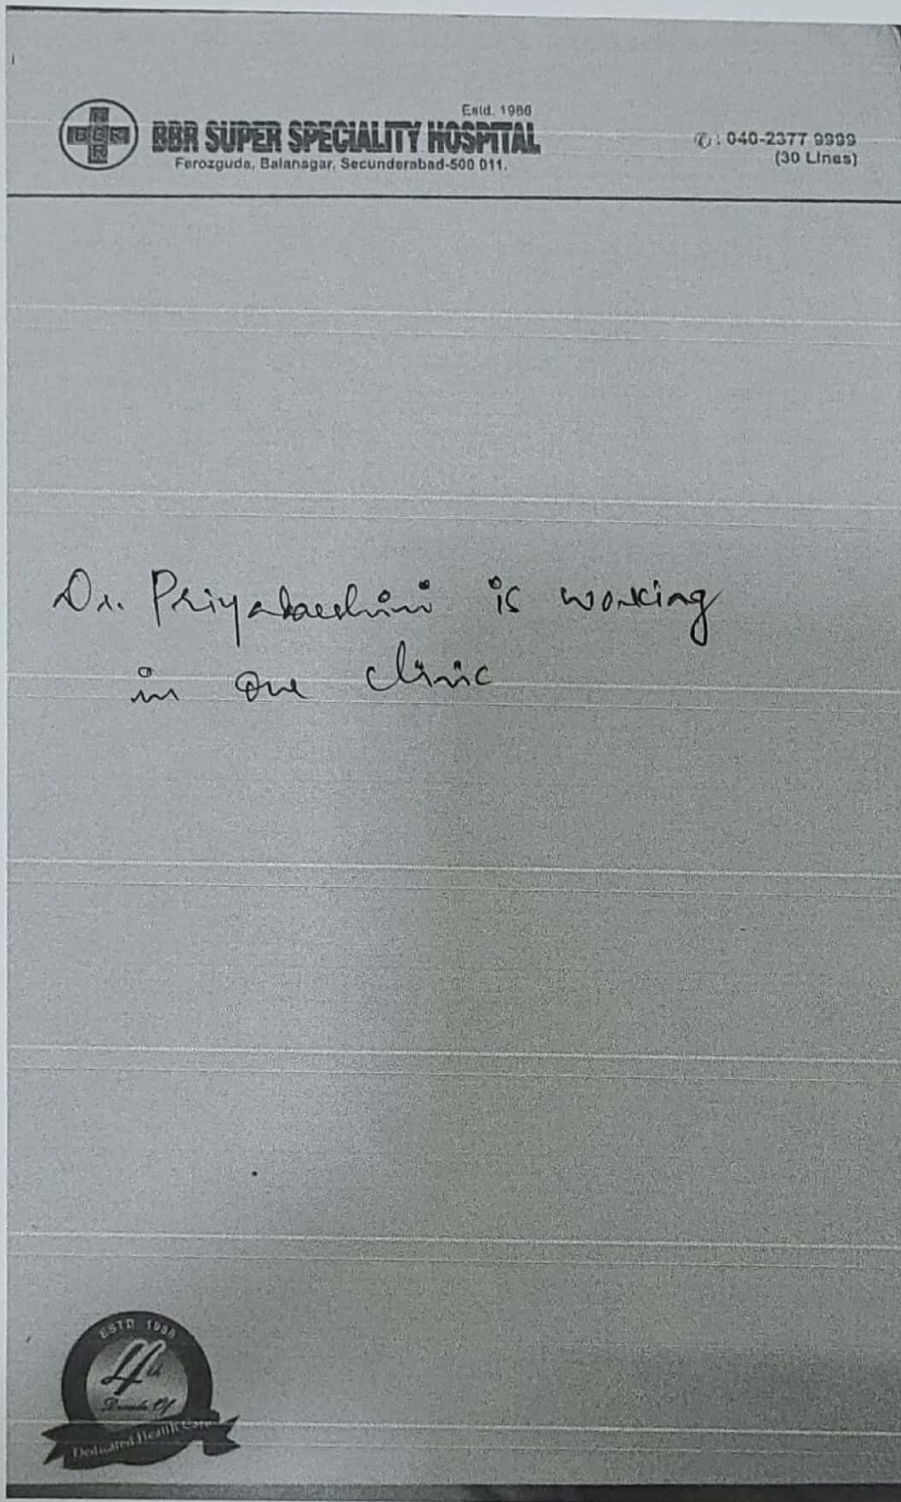 Estd. 1986
BBR SUPER SPECIALITY HOSPITAL
Ferozguda, Balanagar, Secunderabad-500 011.
✆ : 040-2377 9999
(30 Lines)
Dr. is working
in our clinic
ESTD 1986
4th
Decade Of
Dedicated Health Care